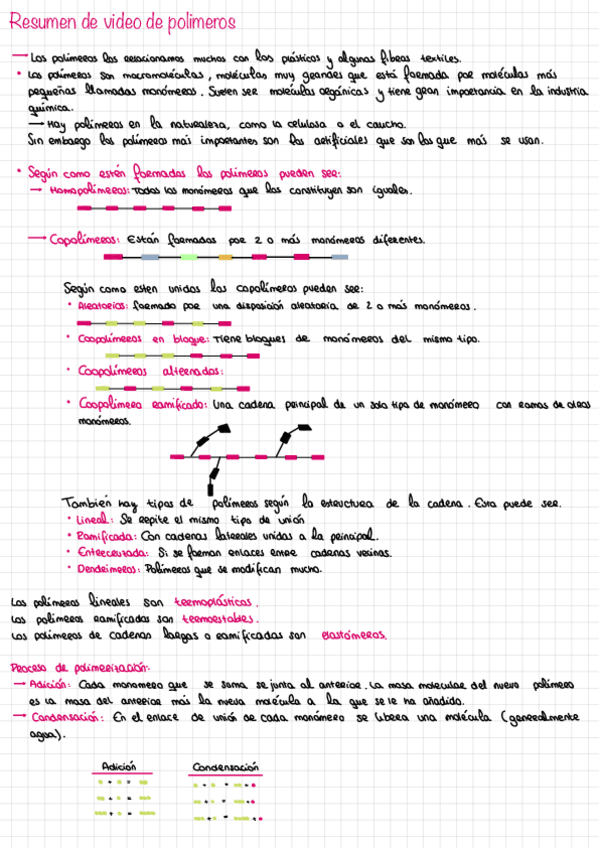 Resumen de video de polimeros
→ Los polímeros los relacionamos muchos con los plásticos y algunas fibras textiles.
• Los polímeros son macromoléculas, moléculas muy grandes que está formada por moléculas más
pequeñas llamadas monómeros. Suelen ser moléculas orgánicas y tiene gran importancia en la industria
química.
→ Hay polímeros en la naturaleza, como la celulosa o el caucho.
Sin embargo los polímeros más importantes son los artificiales que son los que más se usan.
• Según como estén formadas los polímeros pueden ser:
→ Homopolímeros: Todos los monómeros que los constituyen son iguales.
→ Copolímeros: Están formadas por 2 o más monómeros diferentes.
Según como esten unidos los copolímeros pueden ser:
• Aleatorios: formado por una disposición aleatoria de 2 o más monómeros.
• Coopolímeros en bloque: Tiene bloques de monómeros del mismo tipo.
• Coopolímeros alternados:
• Coopolímero ramificado: Una cadena principal de un solo tipo de monómero con ramas de otros
monómeros.
También hay tipos de polímeros según la estructura de la cadena. Esta puede ser.
• Lineal: Se repite el mismo tipo de unión
• Ramificada: Con cadenas laterales unidas a la principal.
• Entrecruzada: Si se forman enlaces entre cadenas vecinas.
• Dendrimeros: Polímeros que se modifican mucho.
Los polímeros lineales son termoplásticos.
Los polímeros ramificados son termoestables.
Los polímeros de cadenas largas o ramificadas son elastómeros.
Proceso de polimerización.
→ Adición: Cada monomero que se suma se junta al anterior. La masa molecular del nuevo polímero
es la masa del anterior más la nueva molécula a la que se le ha añadido.
→ Condensación: En el enlace de unión de cada monómero se libera una molécula (generalmente
agua).
Adición Condensación